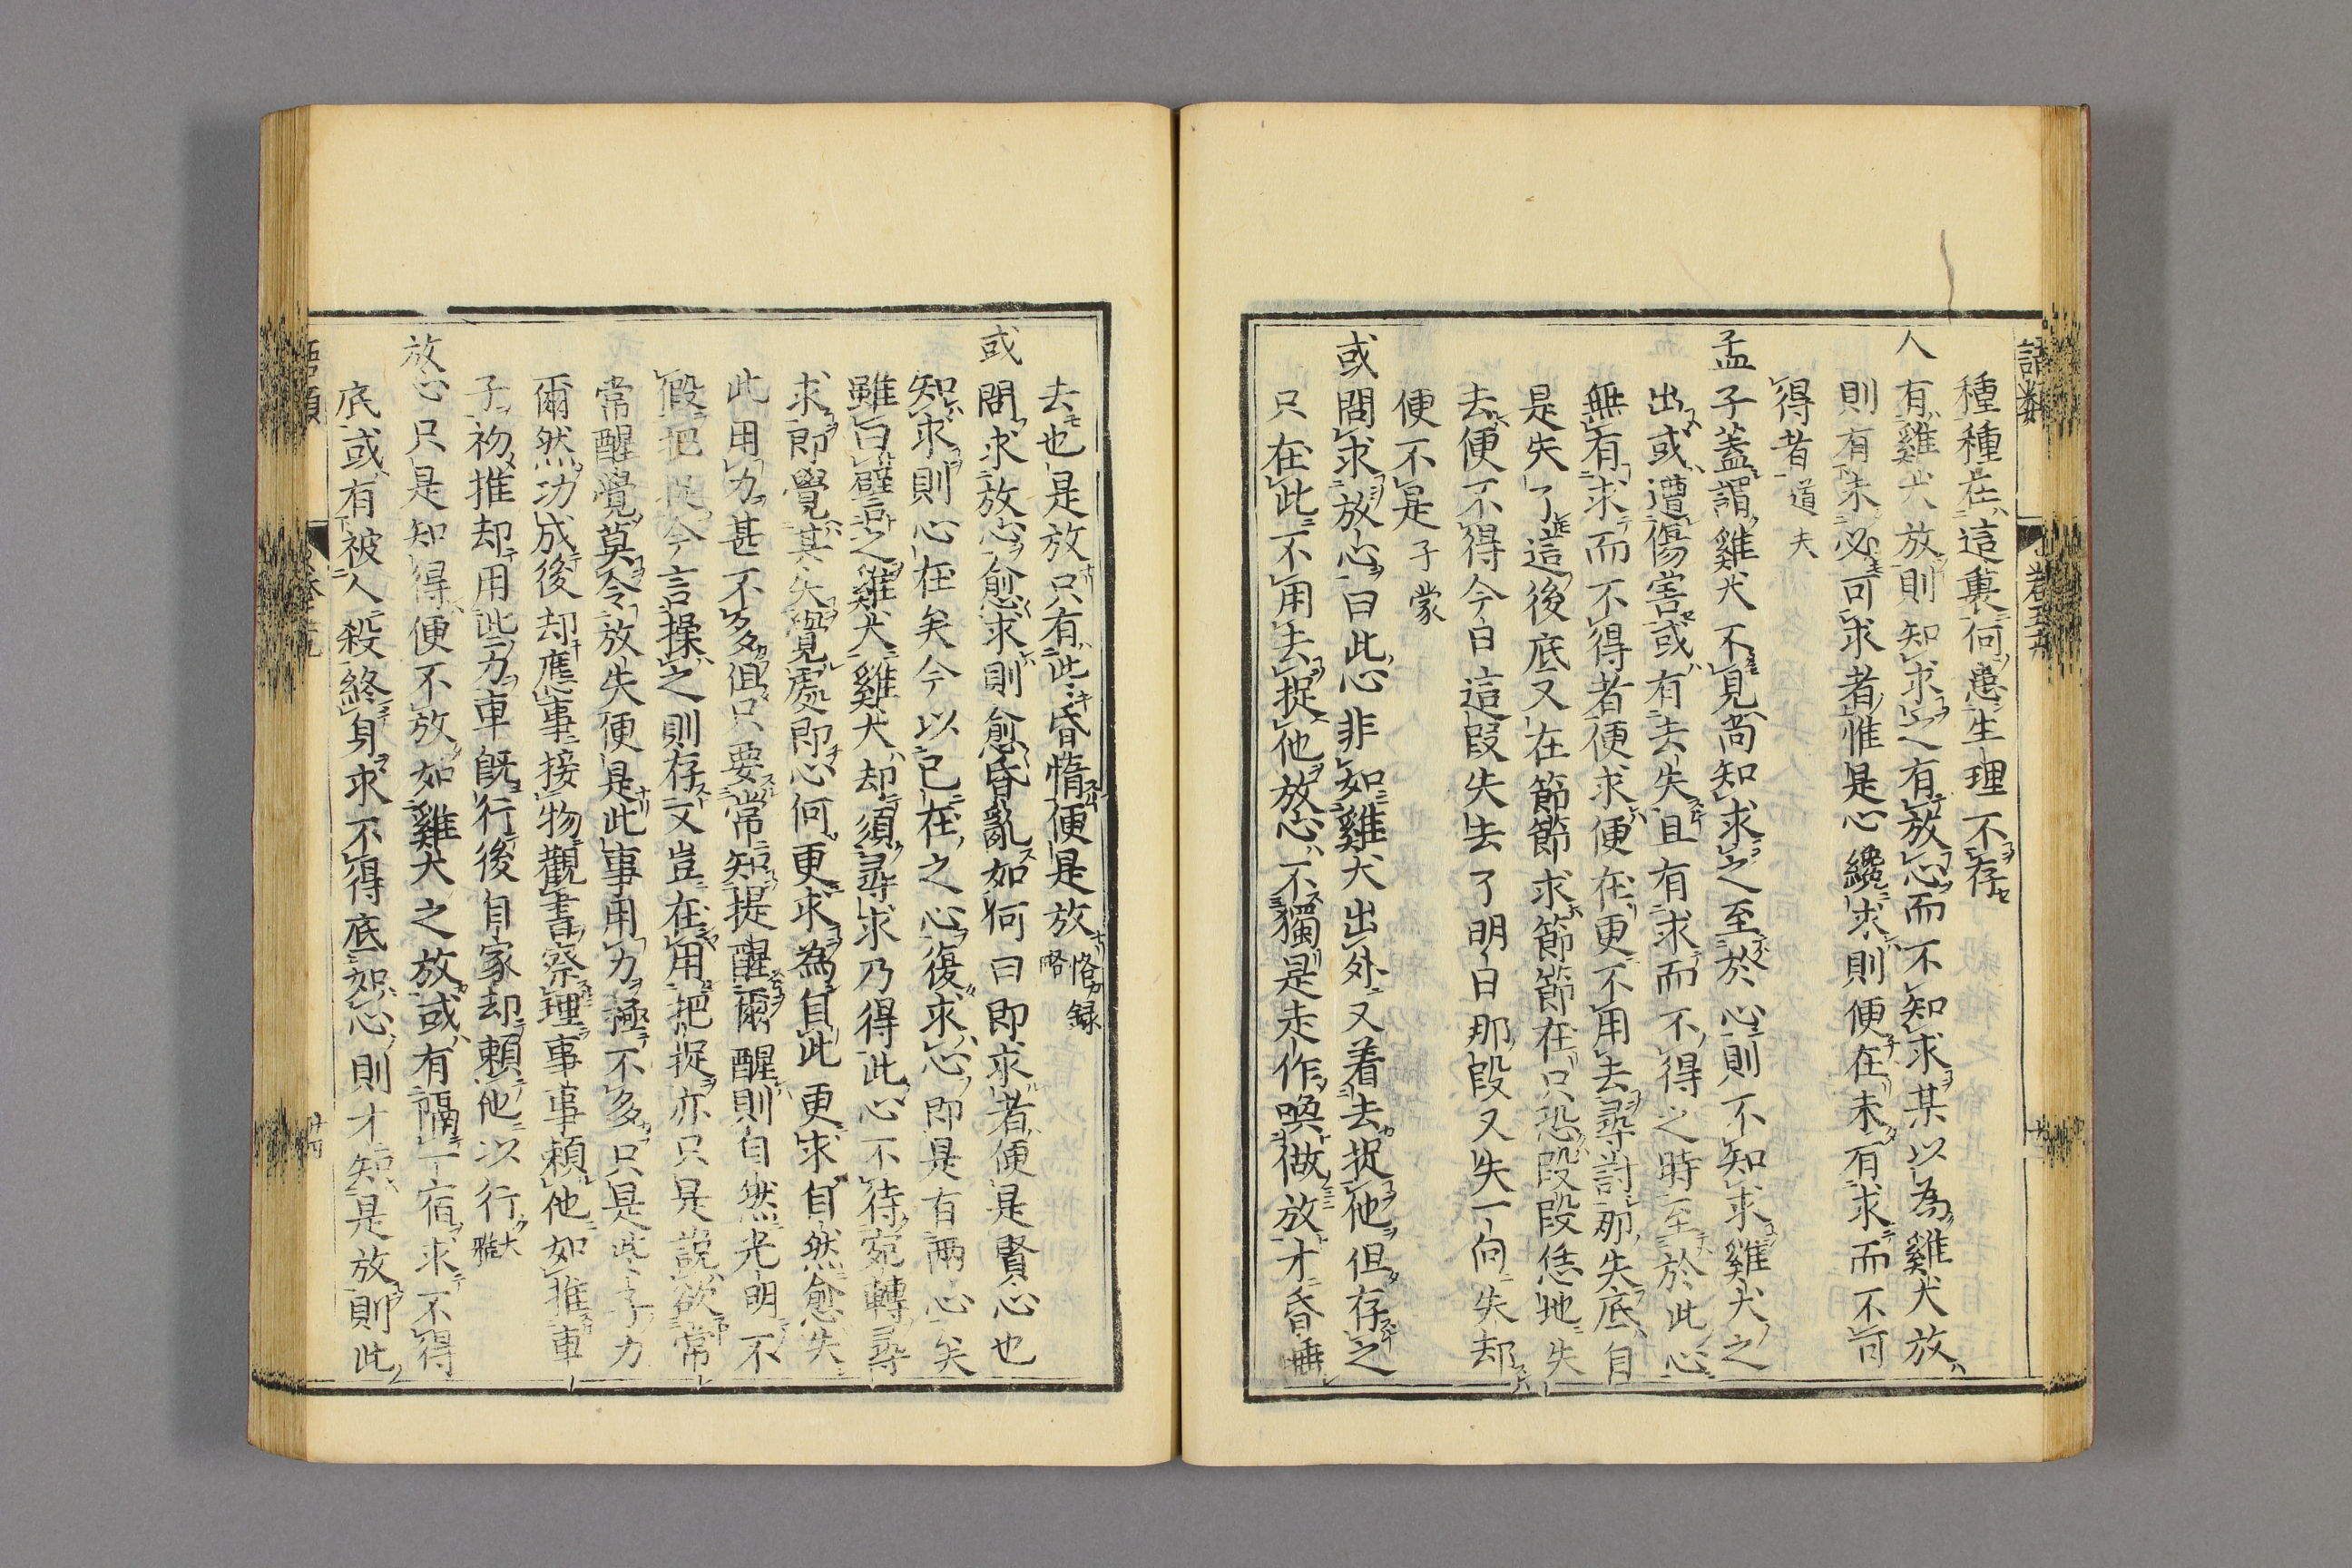 語類
卷五十九
種種在這裏何患生理不存
人有雞犬放則知求之有放心而不知求某以為雞犬放
則有未必可求者惟是心纔求則便在未有求而不可
得者道夫
孟子蓋謂雞犬不見尚知求之至於心則不知求雞犬之
出或遭傷害或有去失且有求而不得之時至於此心
無有求而不得者便求便在更不用去尋討那失底自
是失了這後底又在節節求節節在只恐段段恁地失
去便不得今日這段失去了明日那段又失一向失却
便不是子蒙
或問求放心曰此心非如雞犬出外又着去捉他但存之
只在此不用去捉他放心不獨是走作喚做放才昏睡
去也是放只有些昏惰便是放恪錄略
或問求放心愈求則愈昏亂如何曰即求者便是賢心也
知求則心在矣今以已在之心復求心即是有兩心矣
雖曰譬之雞犬雞犬却須尋求乃得此心不待宛轉尋
求即覺其失覺處即心何更求為自此更求自然愈失
此用力甚不多但只要常知提醒爾醒則自然光明不
假把捉今言操之則存又豈在用把捉亦只是說欲常
常醒覺莫令放失便是此事用力極不多只是些子力
爾然功成後却應事接物觀書察理事事賴他如推車
子初推却用些力車既行後自家却賴他以行大雅
放心只是知得便不放如雞犬之放或有隔一宿求不得
底或有被人殺終身求不得底如心則才知是放則此
語類